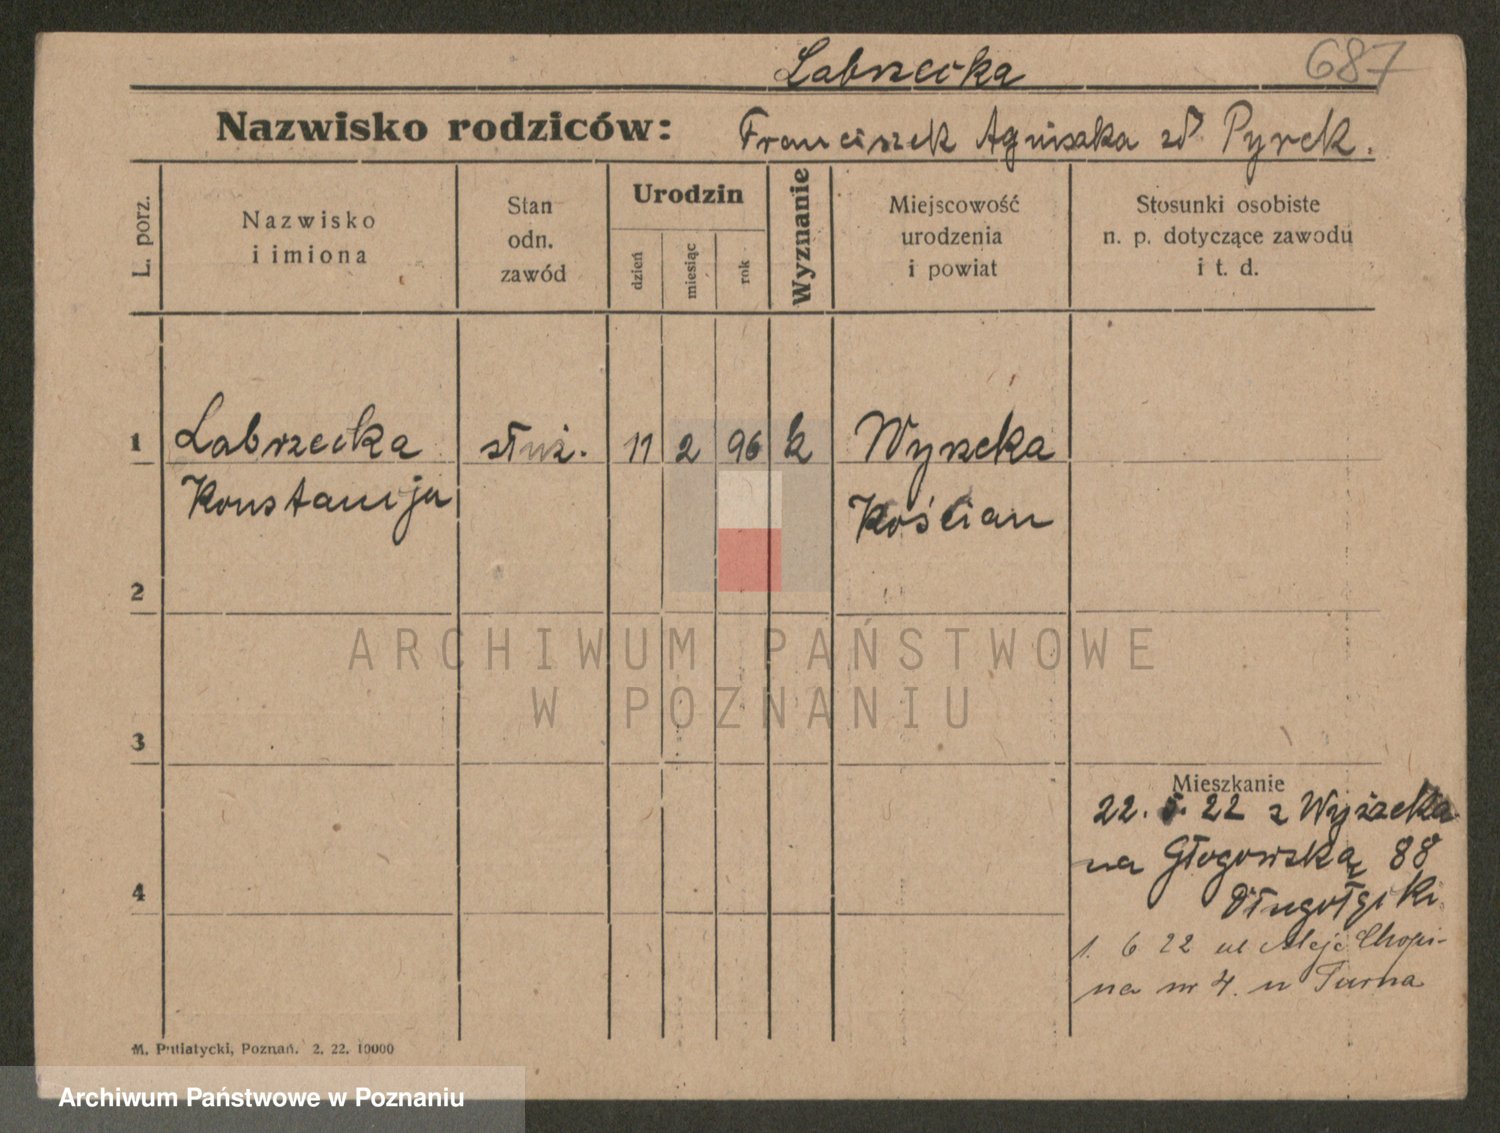 Labrzecka 687
Nazwisko rodziców: Franciszek Agniszka zd Pyrek.
L. porz.
Nazwisko
i imiona
Stan
odn.
zawód
Urodzin
dzień
miesiąc
rok
Wyznanie
Miejscowość
urodzenia
i powiat
Stosunki osobiste
n. p. dotyczące zawodu
i t. d.
1 Labrzecka służ. 11 2 96 k Wyszka
Konstancja Kościan
2
ARCHIWUM PAŃSTWOWE
W POZNANIU
3
Mieszkanie
22. 5. 22 z
na Głogowską 88
4
1. 6 22 ul Aleje Chopi-
na nr 4. u Turna
M. Putiatycki, Poznań. 2. 22. 10000
Archiwum Państwowe w Poznaniu